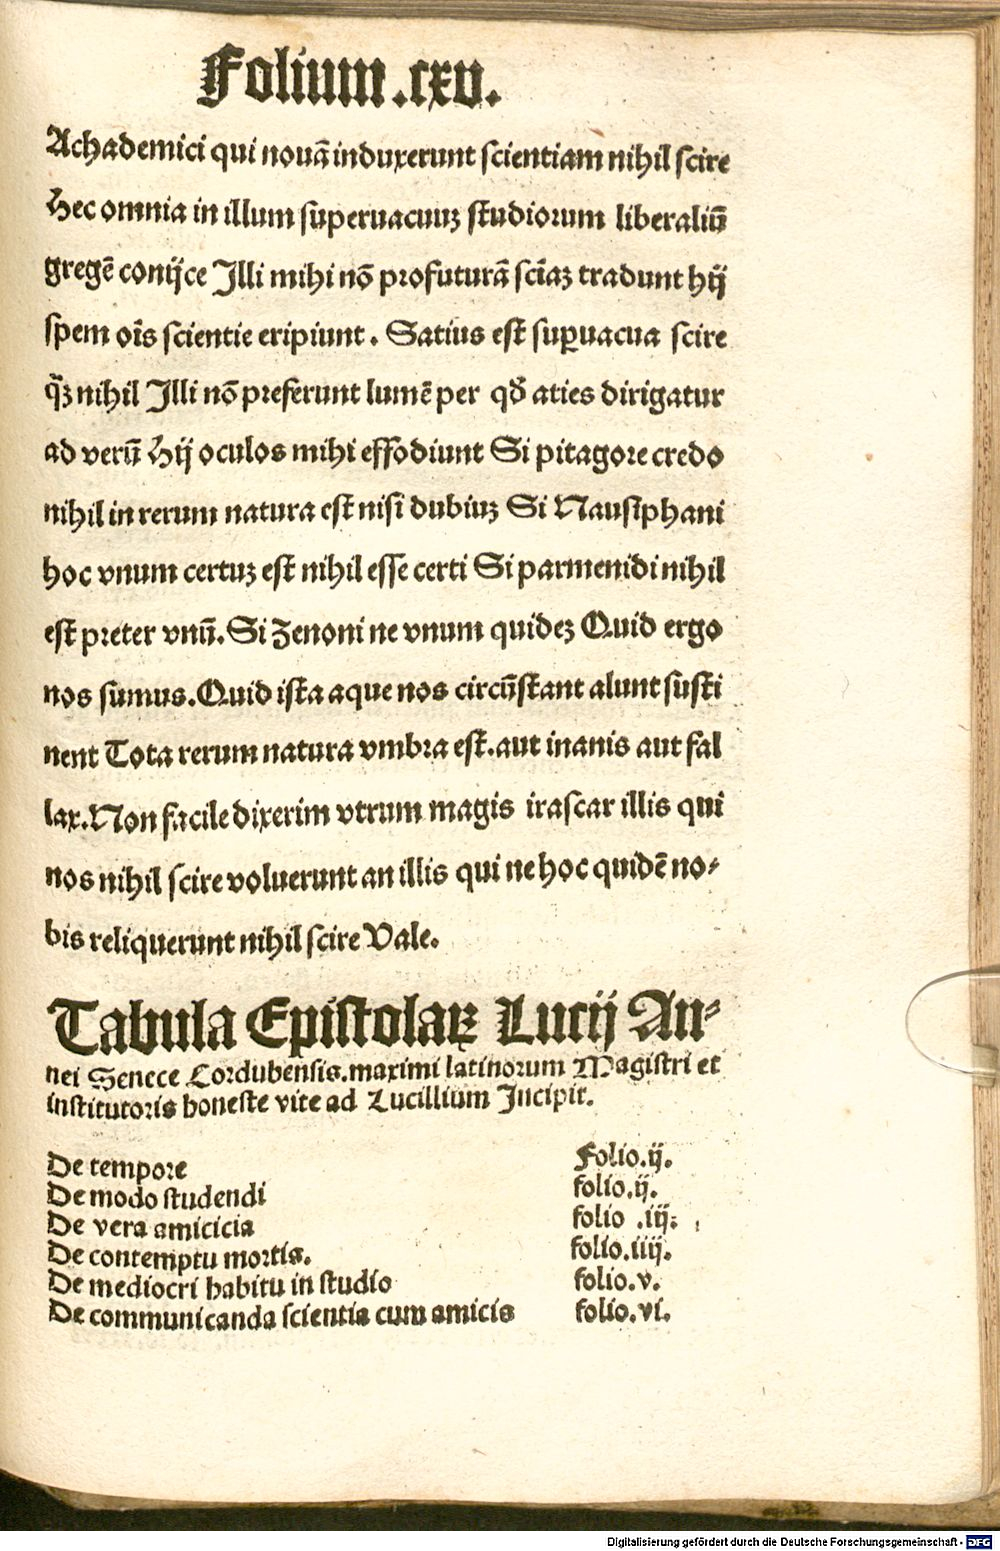 Folium .cxv.
Achademici qui nouā induxerunt scientiam nihil scire
Hec omnia in illum superuacuuꝫ studiorum liberaliū
gregē conijce Illi mihi nō profuturā sciāꝫ tradunt hij
spem oīs scientie eripiunt . Satius est suꝑuacua scire
q̄ꝫ nihil Illi nō preferunt lumē per qđ aties dirigatur
ad verū Hij oculos mihi effodiunt Si pitagore credo
nihil in rerum natura est nisi dubiuꝫ Si Nausiphani
hoc vnum certuꝫ est nihil esse certi Si parmenidi nihil
est preter vnū. Si Zenoni ne vnum quideꝫ Quid ergo
nos sumus. Quid ista aque nos circūstant alunt susti
nent Tota rerum natura vmbra est. aut inanis aut fal
lax. Non facile dixerim vtrum magis irascar illis qui
nos nihil scire voluerunt an illis qui ne hoc quidē no⸗
bis reliquerunt nihil scire Vale.
Tabula Epistolaꝝ Lucij An⸗
nei Senece Cordubensis. maximi latinorum Magistri et
institutoris honeste vite ad Lucillium Incipit.
De tempore Folio. ij.
De modo studendi folio. ij.
De vera amicicia folio .iij.
De contemptu mortis. folio. iiij.
De mediocri habitu in studio folio. v.
De communicanda scientia cum amicis folio. vi.
Digitalisierung gefördert durch die Deutsche Forschungsgemeinschaft - DFG